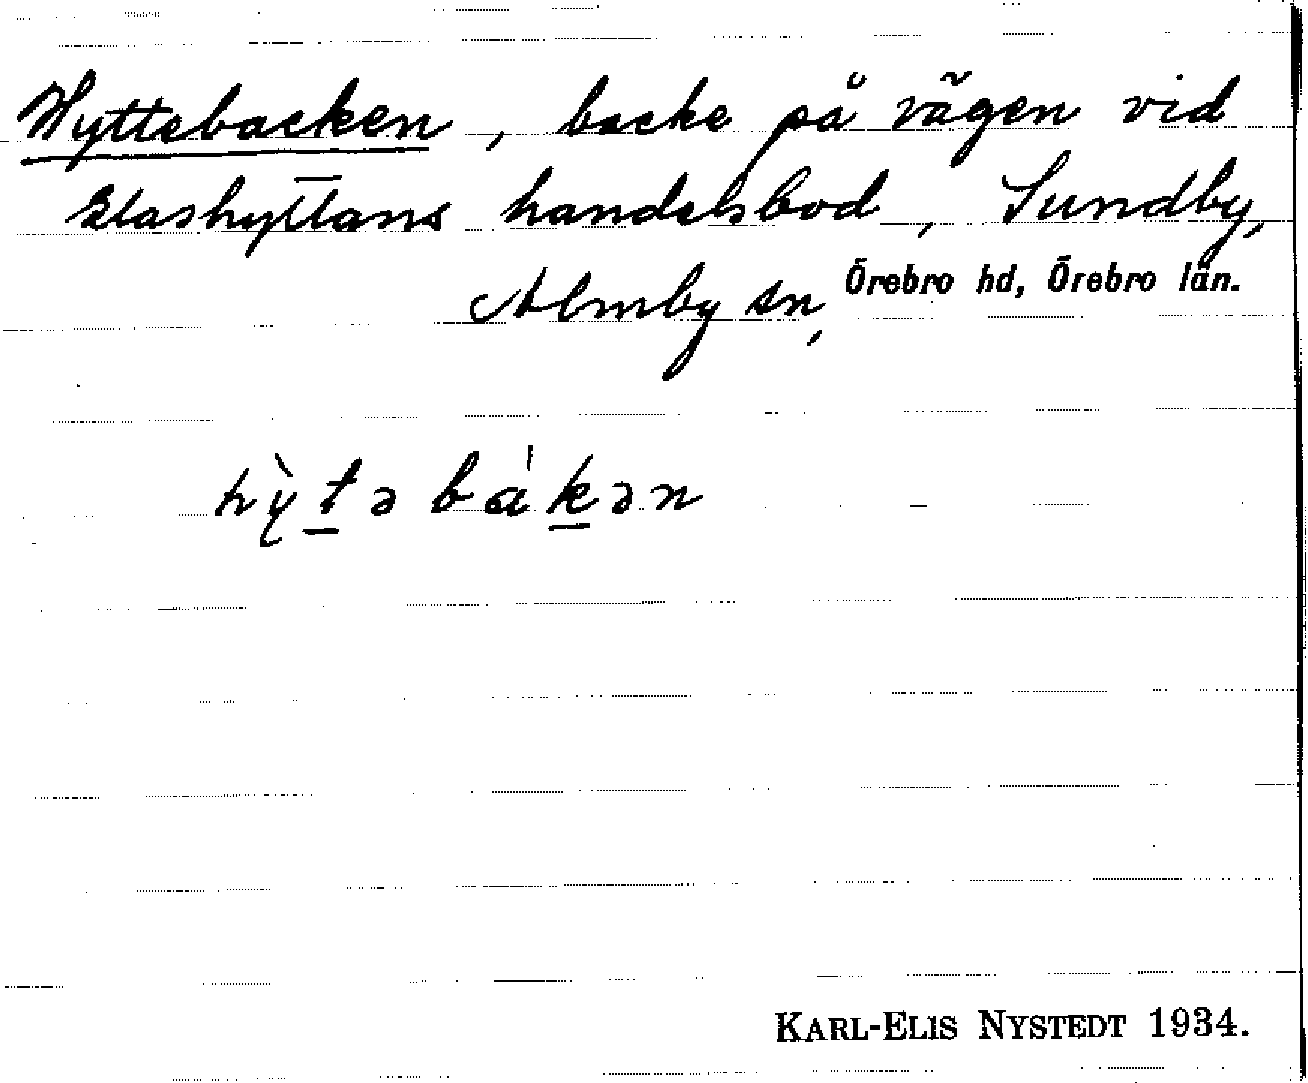 Hyttebacken, backe på vägen vid
Glashyttans handelsbod, Sundby,
Almby sn, Örebro hd, Örebro län.
hỳtə bákən
KARL-ELIS NYSTEDT 1934.